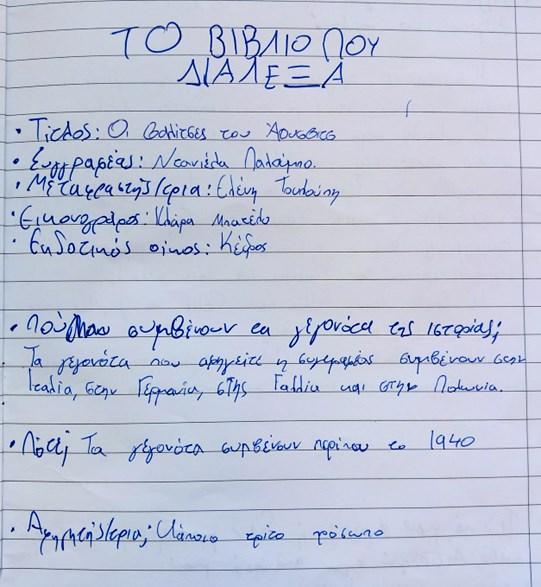 ΤΟ ΒΙΒΛΙΟ ΠΟΥ
ΔΙΑΛΕΞΑ
• Τίτλος: Οι βαλίτσες του Άουσβιτς
• Συγγραφέας: Ντανιέλα Παλούμπο.
• Μεταφραστής/τρια: Ελένη Τουλούπη
• Εικονογράφος: Κλάρα Μπατέλο
• Εκδοτικός οίκος: Κέδρος
• Πού συμβένουν τα γεγονότα της ιστορίας;
Τα γεγονότα που αφηγείτε η συγγραφέας συμβένουν στην
Ιταλία, στην Γερμανία, στης Γαλλία και στην Πολωνία.
• Πότε; Τα γεγονότα συμβένουν περίπου το 1940
• Αφηγητής/τρια; Κάποιο τρίτο πρόσωπο